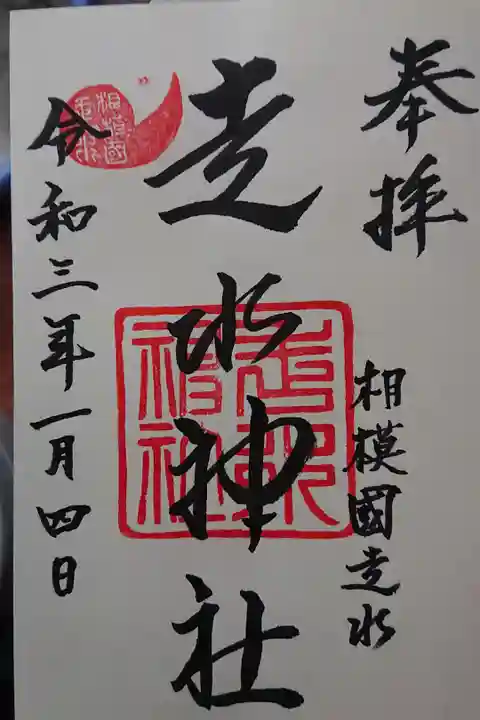 奉拝
相模國走水
走水神社
令和三年一月四日
走水神社
相模國走水